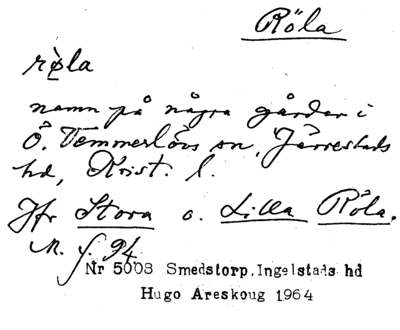 Röla
røla
namn på några gårdar i
Ö. Vemmerlövs sn, Järrestads
hd, Krist. l.
Jfr Stora o. Lilla Röla.
M. f. 94
Nr 5008 Smedstorp, Ingelstads hd
Hugo Areskoug 1964